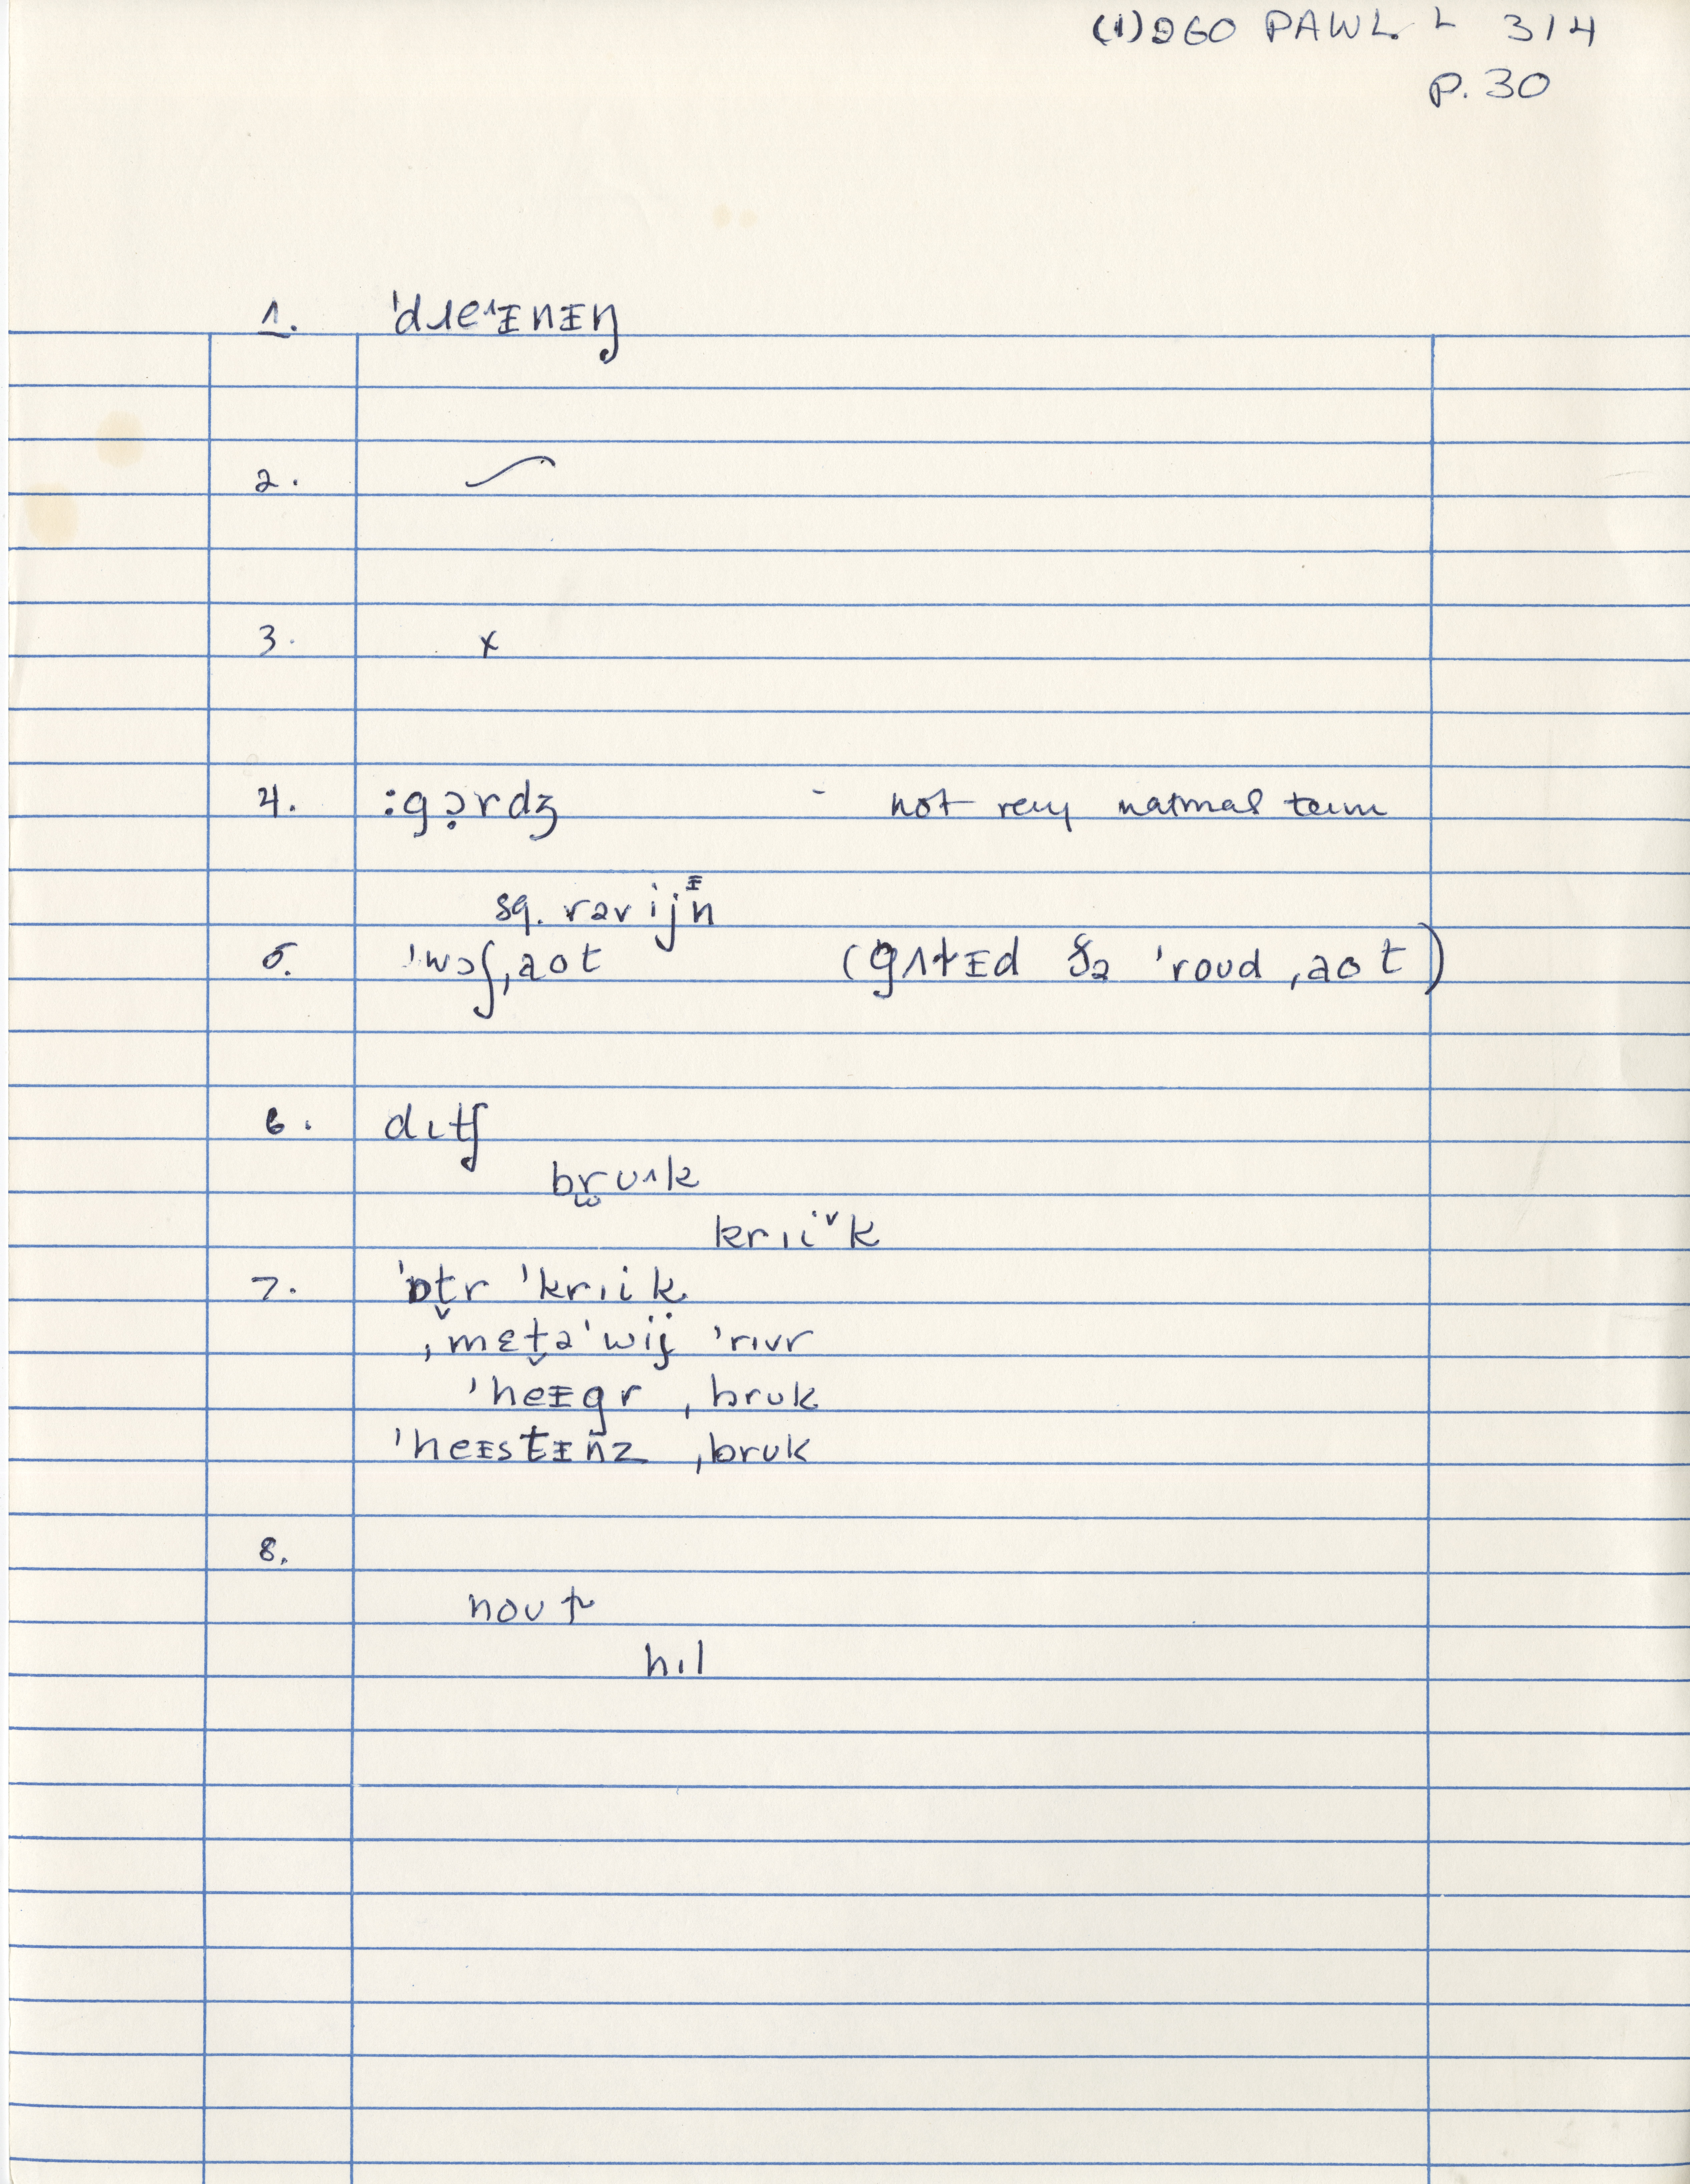 (1) 260 PAWL. L 314
P. 30
1. ˈdɹeᶦᵻnᵻŋ
2.
3. x
4. :gɔ̣rdʒ - not very natural term
sg. rəvijᵻn
5. ˈwɔʃˌaot (gʌtᵻd ðə ˈroud ˌaot)
6. dɪtʃ
brʊ˄k
krɪi˅k
7. ˈɒt̬r ˈkrɪik
ˌmɛt̬əˈwij ˈrɪvr
ˈheᵻgr ˌbrʊk
ˈheᵻstᵻnz ˌbrʊk
8.
noʊp
hɪl